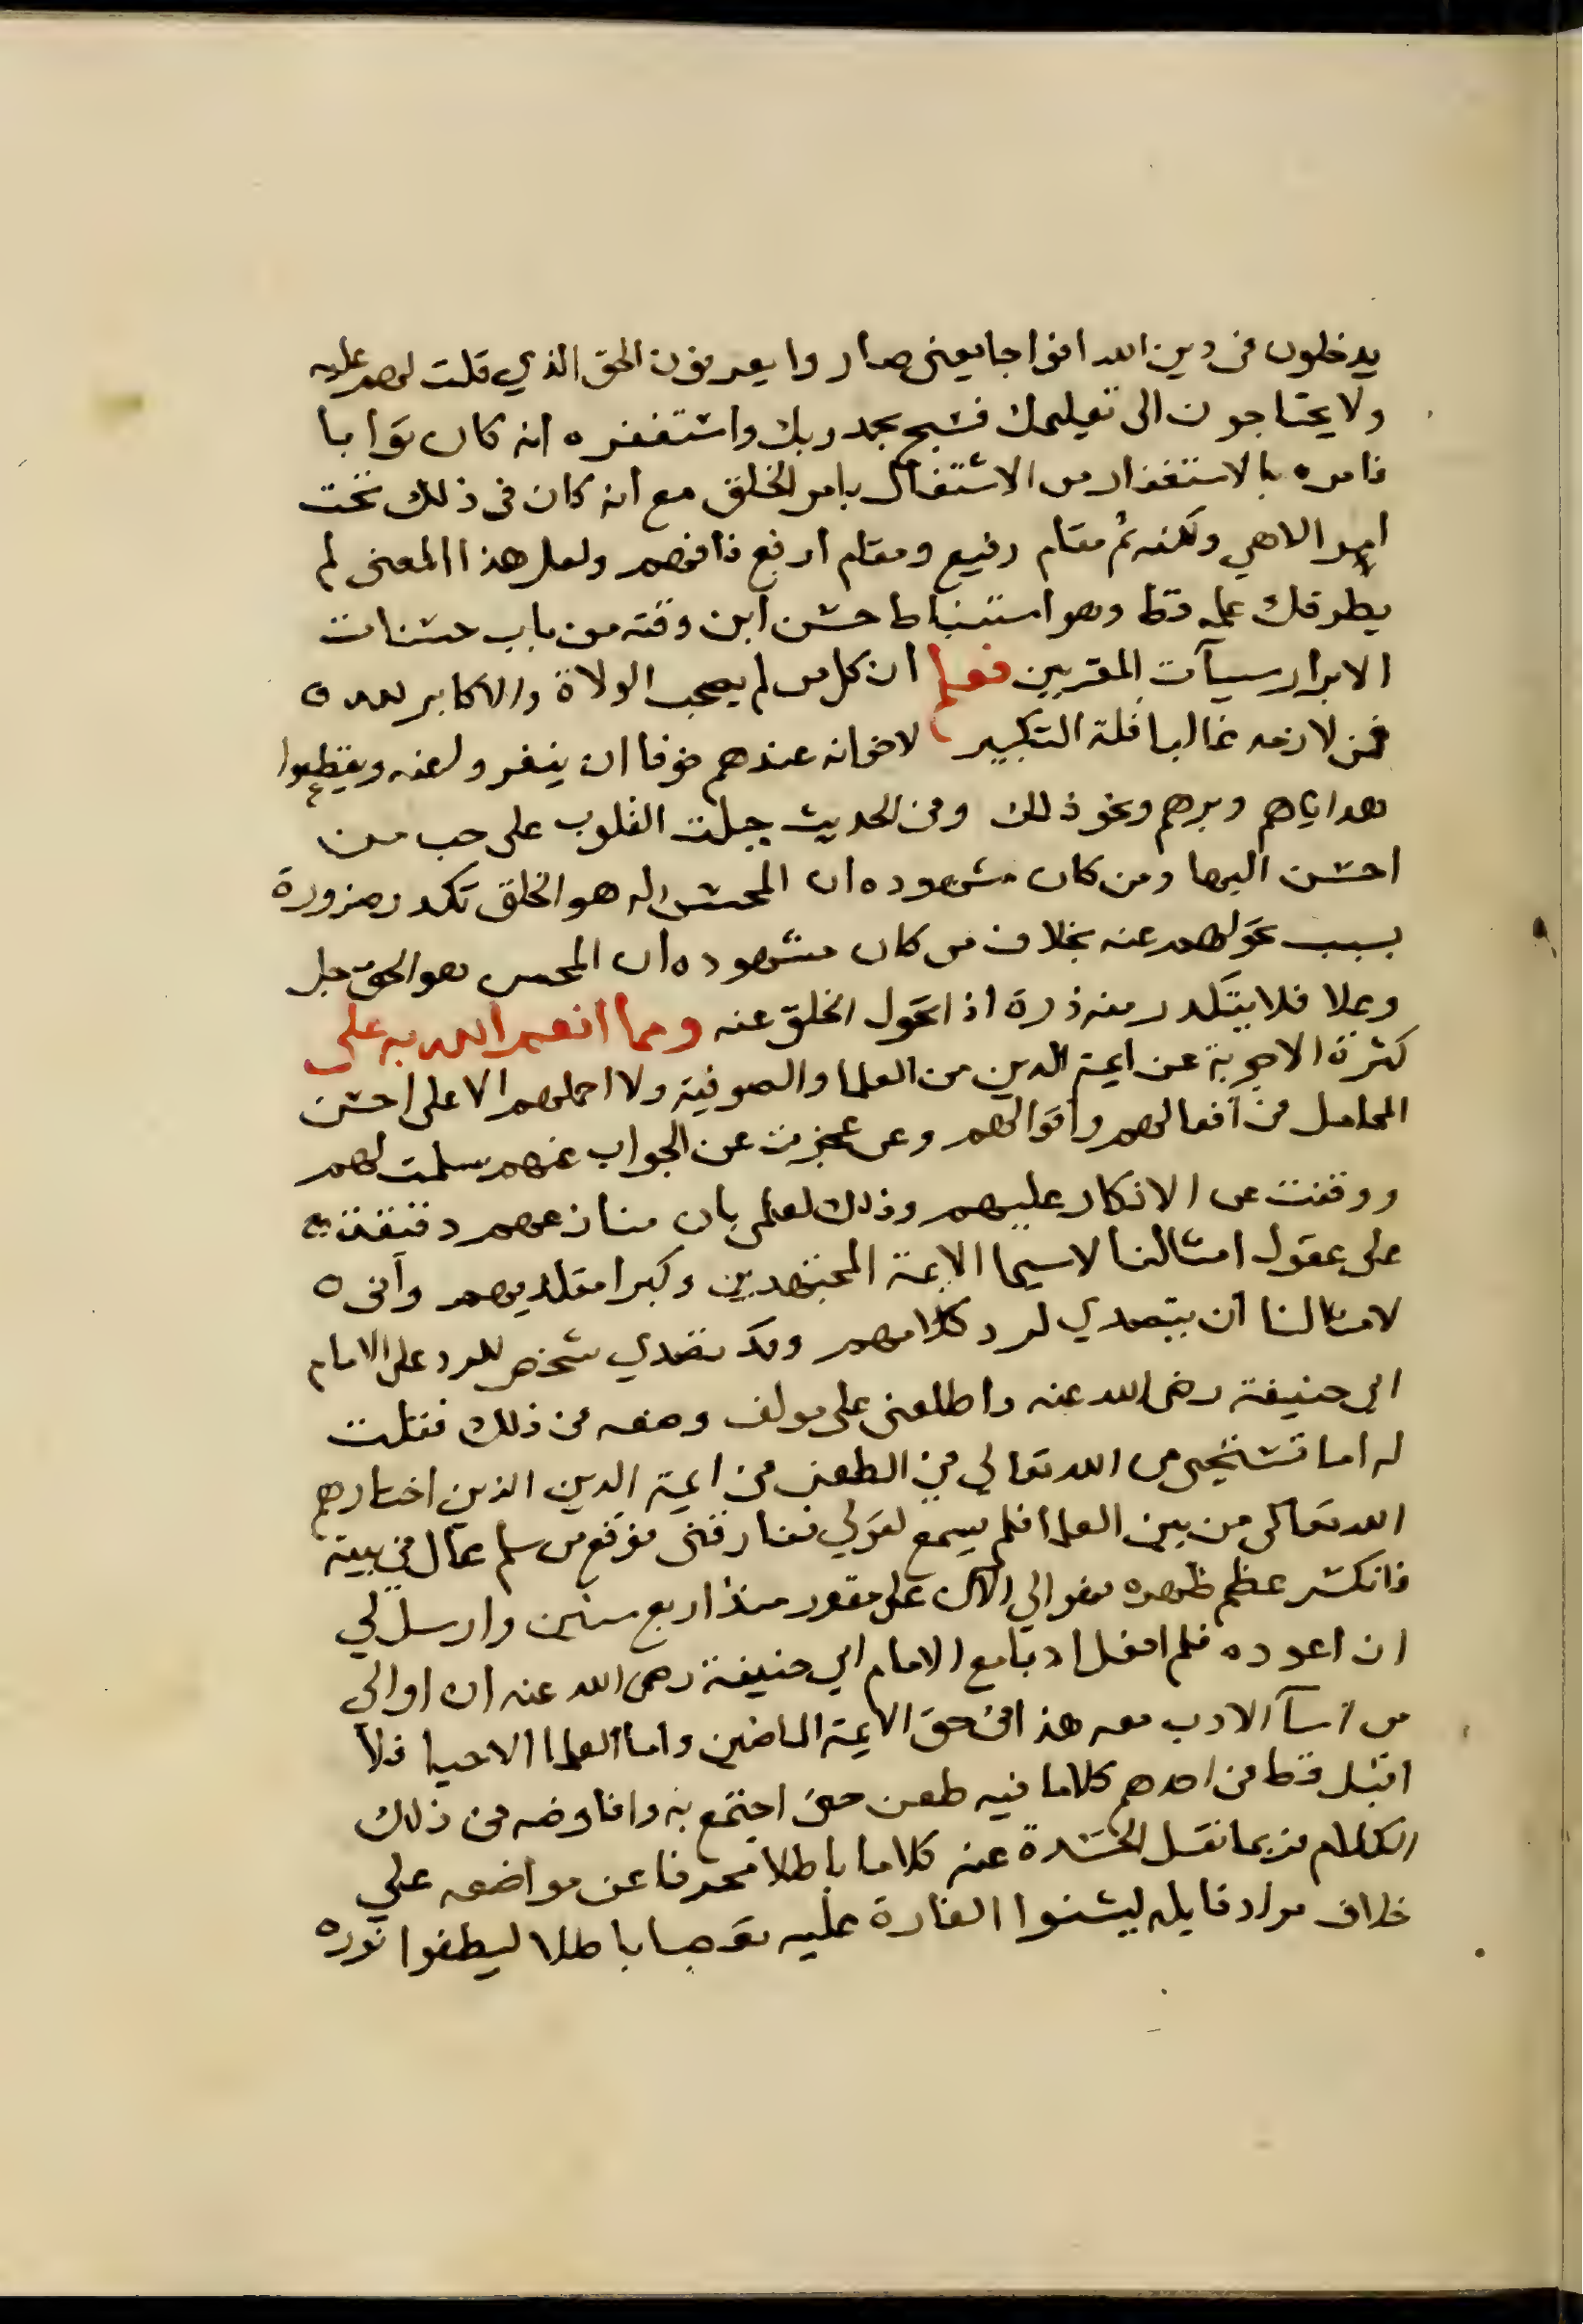 يدخلون في دين الله افواجا يعني صاروا يعرفون الحق الذي قلت لهم عليه
ولا يحتاجون الى تعليمك فسبح بحمد ربك واستغفره انه كان توابا
فامره بالاستغفار من الاشتغال بامر الخلق مع انه كان في ذلك تحت
امر الاهي ولكنه ثم مقام رفيع ومقام ارفع فافهم ولعل هذا المعنى لم
يطرقك علمه قط وهو استنباط حسن ابن وقته من باب حسنات
الابرار سيآت المقربين فعلم ان كل من لم يصحب الولاة والاكابر لله
فمن لازمه غالبا قلة التكبير لاخوانه عندهم خوفا ان ينفروا عنه ويقطعوا
هداياهم وبرهم ونحو ذلك وفي الحديث جبلت القلوب على حب من
احسن اليها ومن كان مشهوده ان المحسن له هو الخلق تكدر ضرورة
بسبب تحولهم عنه بخلاف من كان مشهوده ان المحسن هو الحق جل
وعلا فلا يتكدر منه ذرة اذا تحول الخلق عنه ومما انعم الله به علي
كثرة الاجوبة عن ايمة الدين من العلما والصوفية ولا احملهم الا على احسن
المحامل في افعالهم واقوالهم وعن عجزت عن الجواب عنهم سلمت لهم
ووقفت عن الانكار عليهم وذلك لعلمي بان منازعهم دقيقة
على عقول امثالنا لاسيما الايمة المجتهدين وكبرا مقلديهم وانى
لامثالنا ان يتصدي لرد كلامهم وقد تصدي شخص للرد على الامام
ابي حنيفة رضي الله عنه واطلعني على مولف وضعه في ذلك فقلت
له اما تستحي من الله تعالي في الطعن في ايمة الدين الذين اختارهم
الله تعالى من بين العلما فلم يسمع لقولي ففارقني فوقع من سلم عال في بيته
فانكسر عظم ظهره فهو الي الان على مقور منذ اربع سنين وارسل لي
ان اعوده فلم افعل ادبا مع الامام ابي حنيفة رضي الله عنه ان اوالي
من اسآ الادب معه هذا في حق الايمة الماضين واما العلما الاحيا فلا
اقبل قط في احدهم كلاما فيه طعن حتى اجتمع به وافاوضه في ذلك
الكلام فربما نقل الحسدة عنه كلاما باطلا محرفا عن مواضعه علي
خلاف مراد قايله ليشنوا الغارة عليه تعصبا باطلا ليطفوا نوره